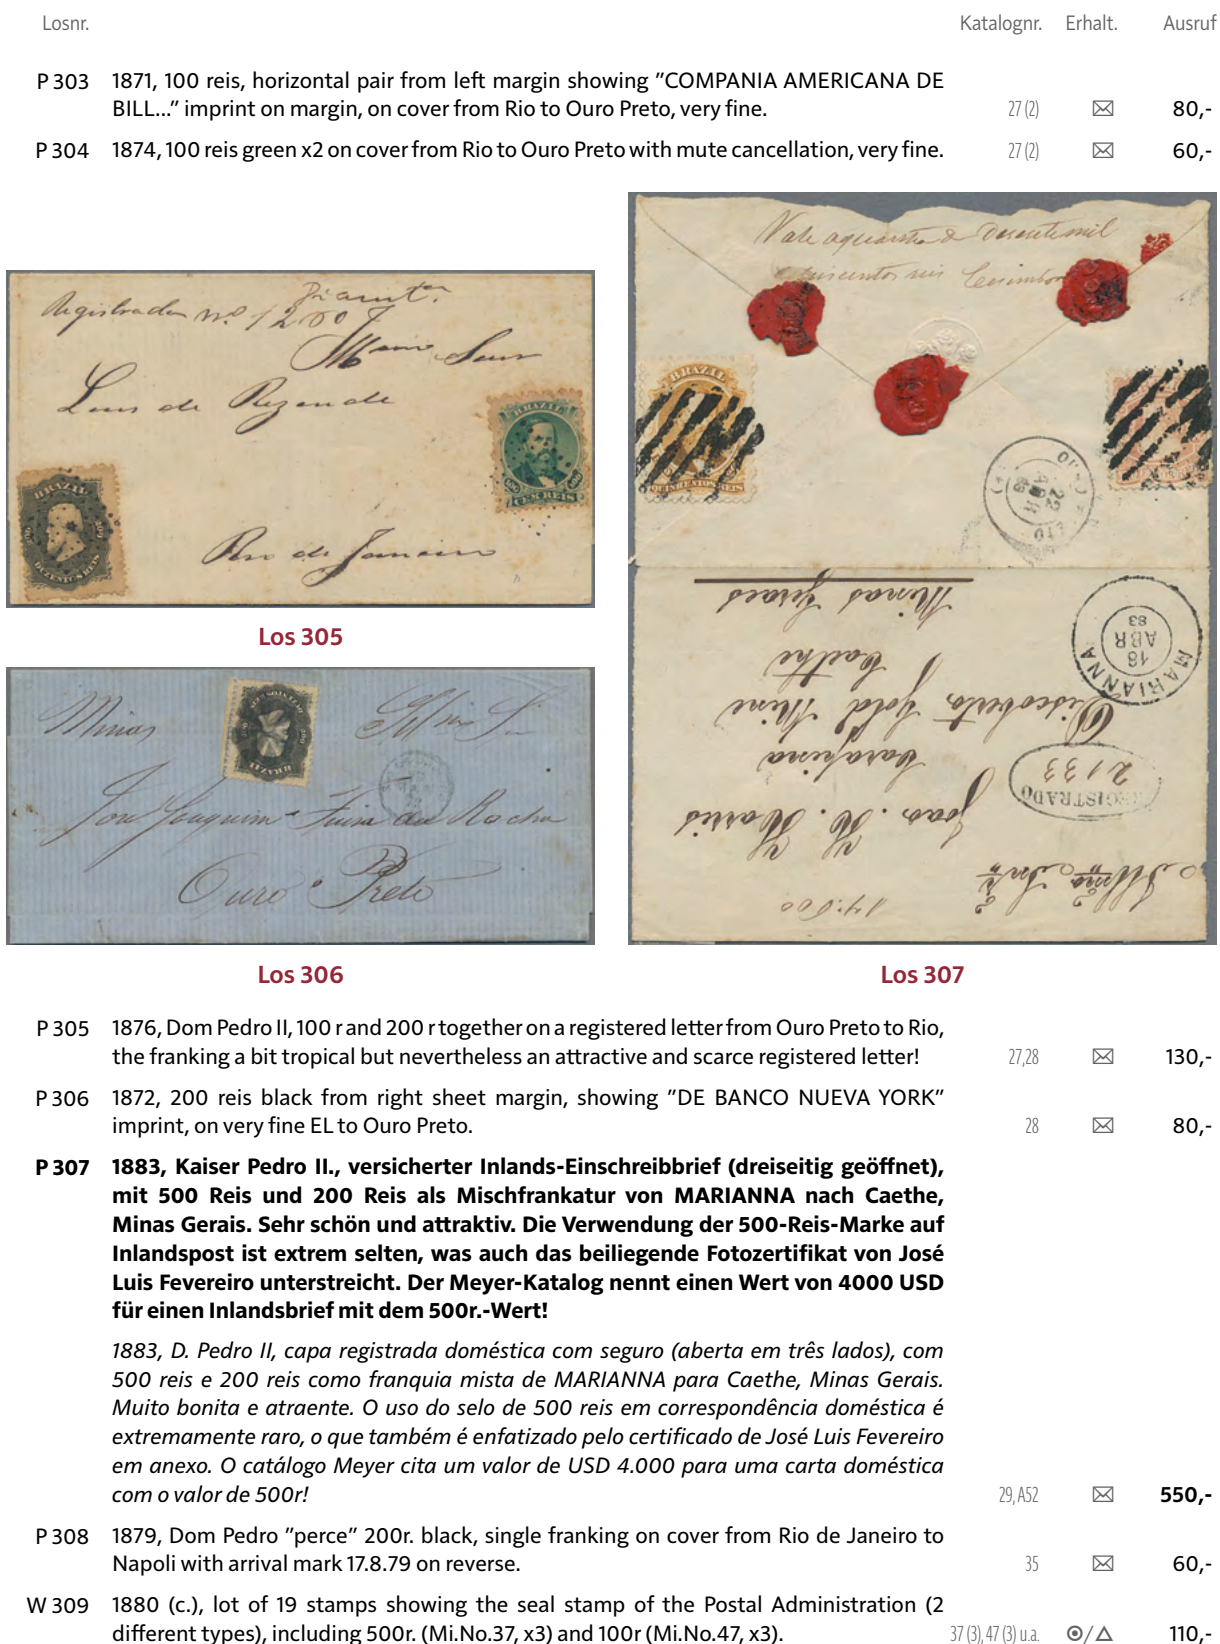 Losnr. Katalognr. Erhalt. Ausruf
P 303 1871, 100 reis, horizontal pair from left margin showing "COMPANIA AMERICANA DE
BILL..." imprint on margin, on cover from Rio to Ouro Preto, very fine. 27 (2) 80,-
P 304 1874, 100 reis green x2 on cover from Rio to Ouro Preto with mute cancellation, very fine. 27 (2) 60,-
Luis de Rezende
Rio de Janeiro
BRAZIL
CEM REIS
BRAZIL
DUZENTOS REIS
Los 305
Minas
Rocha
Ouro Preto
BRAZIL
Los 306
BRAZIL
QUINHENTOS REIS
22
Minas Geraes
MARIANNA
18
ABR
83
Caethe
Gold Mine
REGISTRADO
2133
Los 307
P 305 1876, Dom Pedro II, 100 r and 200 r together on a registered letter from Ouro Preto to Rio,
the franking a bit tropical but nevertheless an attractive and scarce registered letter! 27,28 130,-
P 306 1872, 200 reis black from right sheet margin, showing "DE BANCO NUEVA YORK"
imprint, on very fine EL to Ouro Preto. 28 80,-
P 307 1883, Kaiser Pedro II., versicherter Inlands-Einschreibbrief (dreiseitig geöffnet),
mit 500 Reis und 200 Reis als Mischfrankatur von MARIANNA nach Caethe,
Minas Gerais. Sehr schön und attraktiv. Die Verwendung der 500-Reis-Marke auf
Inlandspost ist extrem selten, was auch das beiliegende Fotozertifikat von José
Luis Fevereiro unterstreicht. Der Meyer-Katalog nennt einen Wert von 4000 USD
für einen Inlandsbrief mit dem 500r.-Wert!
1883, D. Pedro II, capa registrada doméstica com seguro (aberta em três lados), com
500 reis e 200 reis como franquia mista de MARIANNA para Caethe, Minas Gerais.
Muito bonita e atraente. O uso do selo de 500 reis em correspondência doméstica é
extremamente raro, o que também é enfatizado pelo certificado de José Luis Fevereiro
em anexo. O catálogo Meyer cita um valor de USD 4.000 para uma carta doméstica
com o valor de 500r! 29, A52 550,-
P 308 1879, Dom Pedro "perce" 200r. black, single franking on cover from Rio de Janeiro to
Napoli with arrival mark 17.8.79 on reverse. 35 60,-
W 309 1880 (c.), lot of 19 stamps showing the seal stamp of the Postal Administration (2
different types), including 500r. (Mi.No.37, x3) and 100r (Mi.No.47, x3). 37 (3), 47 (3) u.a. 110,-